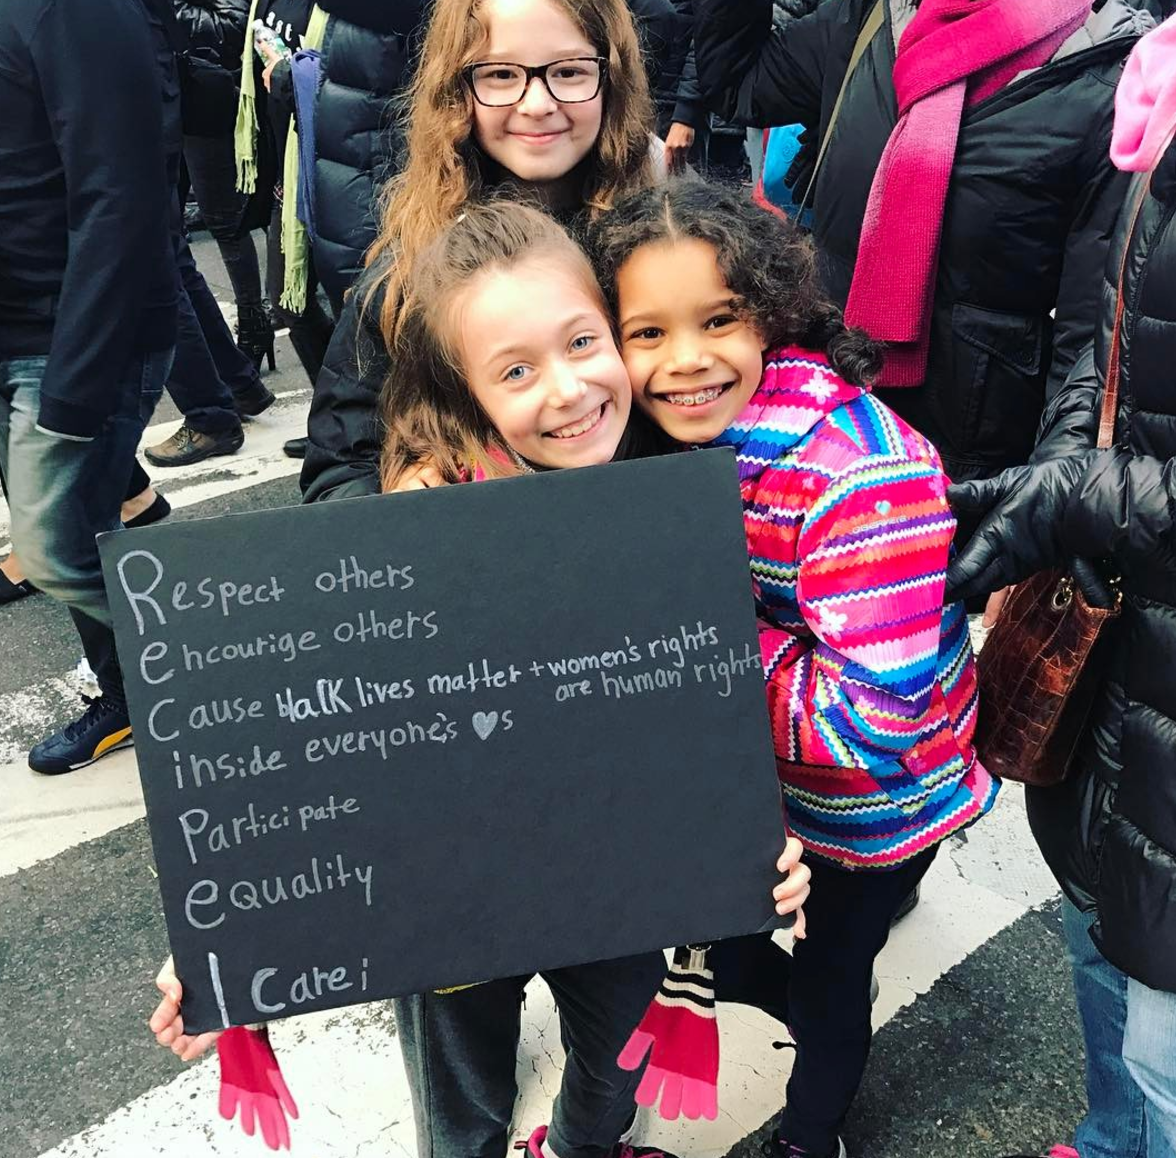 Respect others
encourige others
Cause blalk lives matter + women's rights
are human rights
inside everyone's ♥s
Participate
equality
I Care!